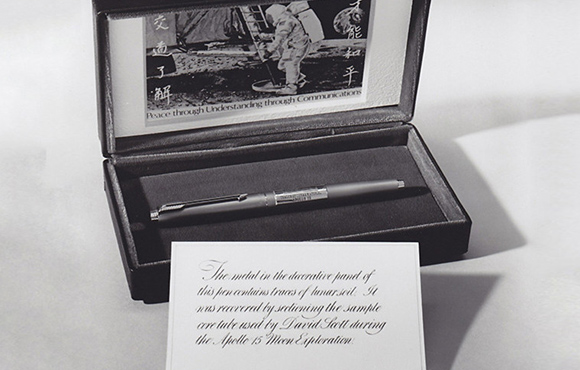 交通了解
才能和平
Peace through Understanding through Communications
The metal in the decorative panel of
this pen contains traces of lunar soil. It
was recovered by sectioning the sample
core tube used by David Scott during
the Apollo 15 Moon Exploration.